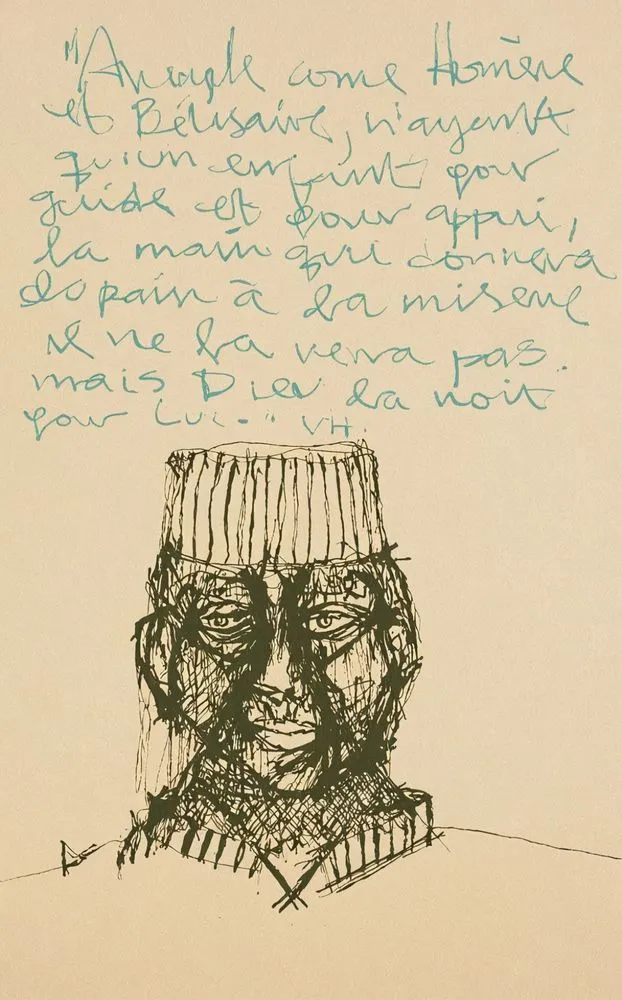 "Aveugle come Homère
et Bélisaire, n'ayant
qu'un enfant pour
guide et pour appui,
la main qui donnera
du pain à sa misere
il ne la verra pas.
mais Dieu la voit
pour Lui." VH.